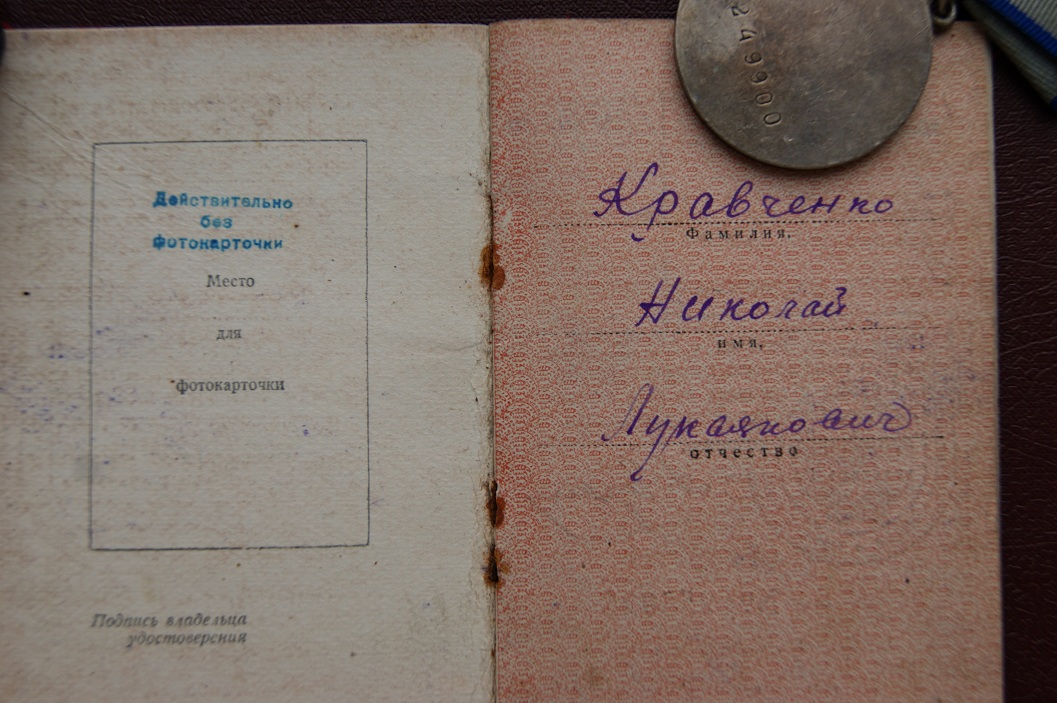 Действительно
без
фотокарточки
Место
для
фотокарточки
Подпись владельца
удостоверения
249900
Кравченко
Фамилия.
Николай
имя,
Лукаянович
отчество